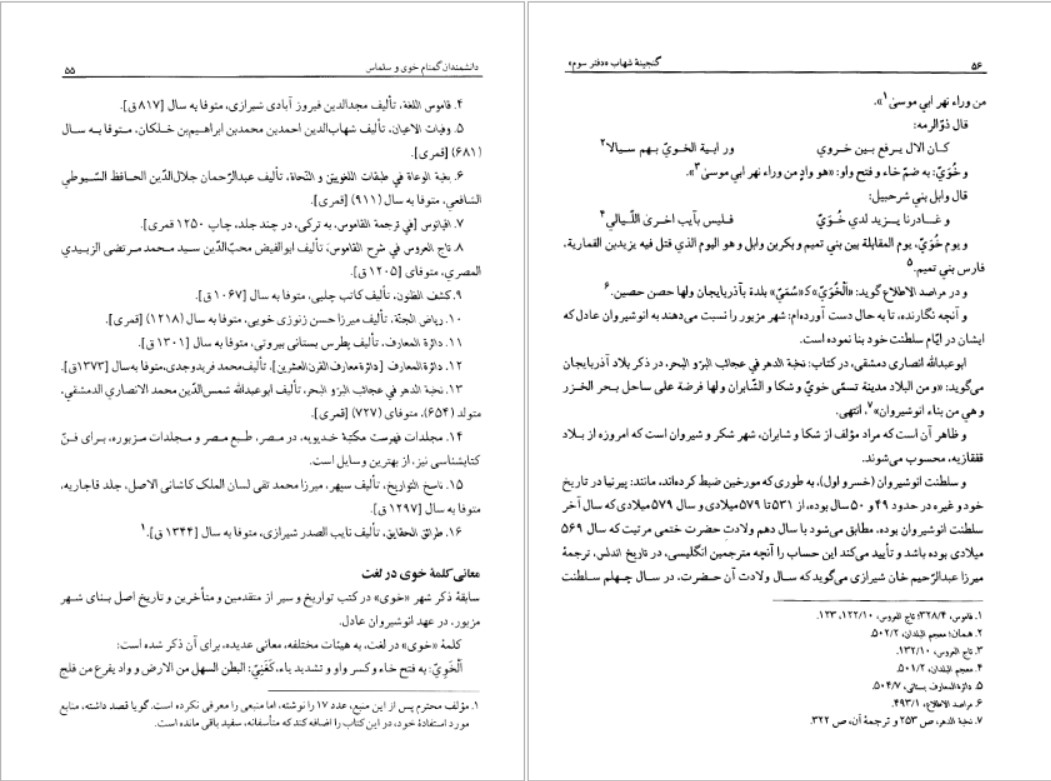 دانشمندان گمنام خوی و سلماس
۵۵
۴. قاموس اللغة، تألیف مجدالدین فیروز آبادی شیرازی، متوفا به سال [۸۱۷ ق].
۵. وفیات الاعیان، تألیف شهاب‌الدین احمدبن محمدبن ابراهیم‌بن خلکان، متوفا به سال
(۶۸۱) [قمری].
۶. بغیة الوعاة في طبقات اللغویین و النّحاة، تألیف عبدالرّحمان جلال‌الدّین الحافظ السّیوطي
الشافعي، متوفا به سال (۹۱۱) [قمری].
۷. اقیانوس [في ترجمة القاموس، به ترکی، در چند جلد، چاپ ۱۲۵۰ قمری].
۸. تاج العروس في شرح القاموس، تألیف ابوالفیض محبّ‌الدّین سید محمد مرتضی الزبیدي
المصري، متوفای [۱۲۰۵ ق].
۹. کشف الظنون، تألیف کاتب چلبی، متوفا به سال [۱۰۶۷ ق].
۱۰. ریاض الجنّة، تألیف میرزا حسن زنوزی خویی، متوفا به سال (۱۲۱۸) [قمری].
۱۱. دائرة المعارف، تألیف پطرس بستانی بیروتی، متوفا به سال [۱۳۰۱ ق].
۱۲. دائرة المعارف [دائرة معارف القرن العشرین]، تألیف محمد فرید وجدی، متوفا به سال [۱۳۷۳ ق].
۱۳. نخبة الدهر في عجائب البرّ و البحر، تألیف ابوعبدالله شمس‌الدّین محمد الانصاري الدمشقي،
متولد (۶۵۴)، متوفای (۷۲۷) [قمری].
۱۴. مجلدات فهرست مکتبة خدیویه، در مصر، طبع مصر و مجلدات مزبوره، برای فنّ
کتابشناسی نیز، از بهترین وسایل است.
۱۵. ناسخ التواریخ، تألیف سپهر، میرزا محمد تقی لسان الملک کاشانی الاصل، جلد قاجاریه،
متوفا به سال [۱۲۹۷ ق].
۱۶. طرائق الحقایق، تألیف نایب الصدر شیرازی، متوفا به سال [۱۳۴۴ ق].۱
معانی کلمهٔ خوی در لغت
سابقهٔ ذکر شهر «خوی» در کتب تواریخ و سیر از متقدمین و متأخرین و تاریخ اصل بنای شهر
مزبور، در عهد انوشیروان عادل.
کلمهٔ «خوی» در لغت، به هیئات مختلفه، معانی عدیده، برای آن ذکر شده است:
اَلْخَوِيّ: به فتح خاء و کسر واو و تشدید یاء، کَغَنِيّ: البطن السهل من الارض و واد یفرع من فلج
۱. مؤلف محترم پس از این منبع، عدد ۱۷ را نوشته، اما منبعی را معرفی نکرده است. گویا قصد داشته، منابع
مورد استفادهٔ خود، در این کتاب را اضافه کند که متأسفانه، سفید باقی مانده است.
۵۶
گنجینهٔ شهاب «دفتر سوم»
من وراء نهر ابي موسىٰ۱».
قال ذوّالرمه:
کان الال یرفع بین خروي ور ابیة الخويّ بهم سیالا۲
و خُوَيّ: به ضمّ خاء و فتح واو: «هو وادٍ من وراء نهر ابي موسىٰ۳».
قال وابل بني شرحبیل:
و غادرنا یزید لدي خُوَيّ فلیس بآیب اخرىٰ اللّیالي۴
و یوم خُوَيّ، یوم المقابلة بین بني تمیم و بکربن وابل و هو الیوم الذي قتل فیه یزیدبن القماریة،
فارس بني تمیم.۵
و در مراصد الاطلاع گوید: «اَلْخُوَيّ» کـ«سُمَيّ» بلدة بآذربایجان ولها حصن حصین.۶
و آنچه نگارنده، تا به حال دست آورده‌ام: شهر مزبور را نسبت می‌دهند به انوشیروان عادل که
ایشان در ایّام سلطنت خود بنا نموده است.
ابوعبدالله انصاری دمشقی، در کتاب: نخبة الدهر في عجائب البرّ و البحر، در ذکر بلاد آذربایجان
می‌گوید: «و من البلاد مدینة تسمّى خويّ و شکا و الشّابران ولها فرضة على ساحل بحر الخزر
و هي من بناء انوشیروان»۷، انتهی.
و ظاهر آن است که مراد مؤلف از شکا و شابران، شهر شکر و شیروان است که امروزه از بلاد
قفقازیه، محسوب می‌شوند.
و سلطنت انوشیروان (خسرو اول)، به طوری که مورخین ضبط کرده‌اند، مانند: پیرنیا در تاریخ
خود و غیره در حدود ۴۹ و ۵۰ سال بوده، از ۵۳۱ تا ۵۷۹ میلادی و سال ۵۷۹ میلادی که سال آخر
سلطنت انوشیروان بوده، مطابق می‌شود با سال دهم ولادتِ حضرت ختمی مرتبت که سال ۵۶۹
میلادی بوده باشد و تأیید می‌کند این حساب را آنچه مترجمین انگلیسی، در تاریخ اندلس، ترجمهٔ
میرزا عبدالرّحیم خان شیرازی می‌گوید که سال ولادت آن حضرت، در سال چهلم سلطنت
۱. قاموس، ۳۲۸/۴؛ تاج العروس، ۱۲۲/۱۰، ۱۲۳.
۲. همان؛ معجم البلدان، ۵۰۲/۲.
۳. تاج العروس، ۱۳۲/۱۰.
۴. معجم البلدان، ۵۰۱/۲.
۵. دائرةالمعارف بستانی، ۵۰۴/۷.
۶. مراصد الاطلاع، ۴۹۳/۱.
۷. نخبة الدهر، ص ۲۵۳ و ترجمهٔ آن، ص ۳۲۲.